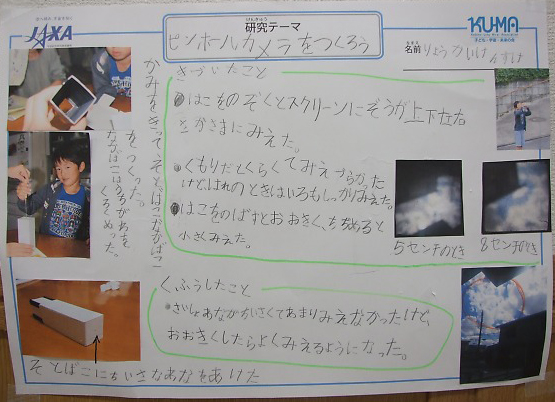 JAXA
けんきゅう
研究テーマ
ピンホールカメラをつくろう
KU-MA
子ども・宇宙・未来の会
名前
きづいたこと
はこをのぞくとスクリーンにぞうが上下左右
さかさまにみえた。
くもりだとくらくてみえ
けどはれのときはいろもしっかりみえた。
はこをのばすとおおきく、ちぢめると
小さくみえた。
5センチのとき
8センチのとき
かみをきって、そとばことなかばこ
をつくった。
なかばこはうちがわを
くろくぬった。
くふうしたこと
さいしょあながちいさくてあまりみえなかったけど、
おおきくしたらよくみえるようになった。
そとばこにちいさなあなをあけた